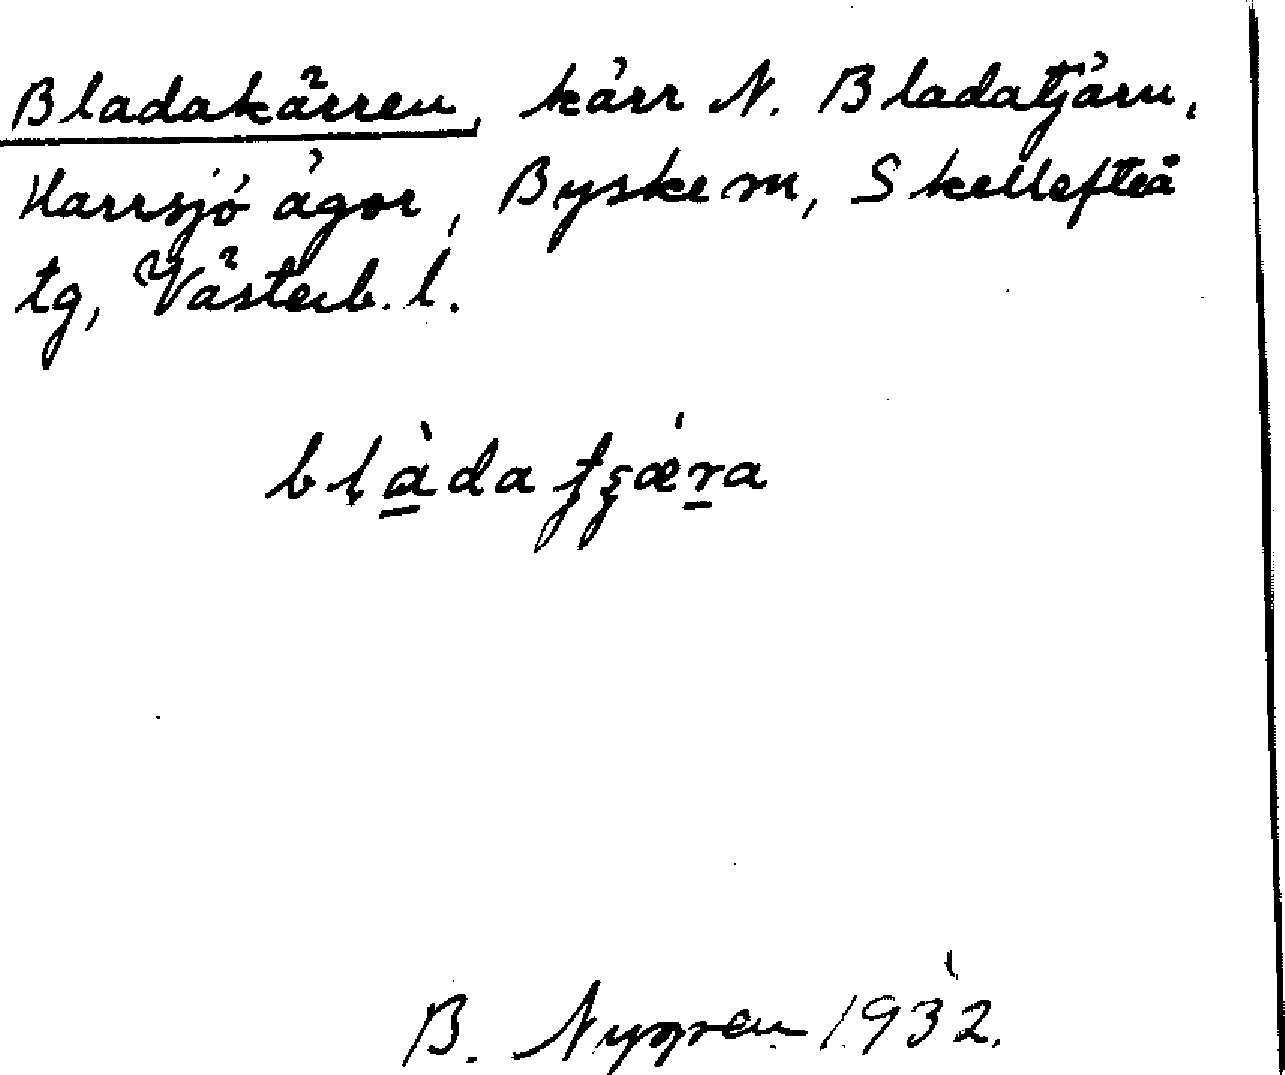 Bladakärren, kärr N. Bladatjärn,
Harrsjö ägor, Byske sn, Skellefteå
tg, Västerb. l.
blàda ʈʂǽra
B. Nygren 1932.